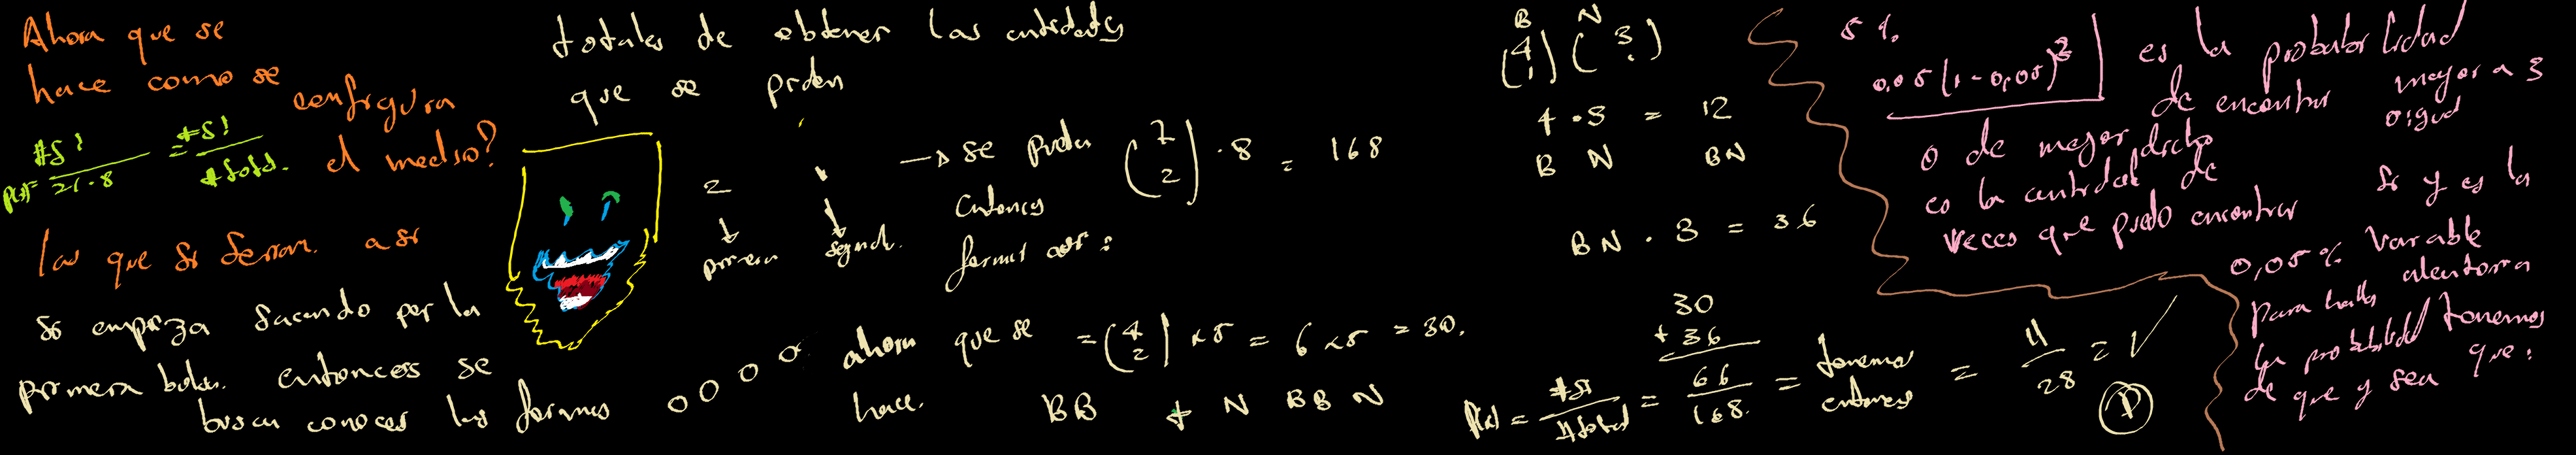 Ahora que se
hace como se
configura
el medio?
P(s)= #S! / 21·8 = #S! / #total.
las que si serian. asi
Se empieza sacando por la
primera bolsa. entonces se
busca conocer las formas
totales de obtener las cantidades
que se piden
2 1
↓ ↓
primera segunda.
→ se pueden (7 2) · 8 = 168
entonces
formas así:
ahora que se = (4 2) x5 = 6 x5 = 30.
hace. BB + N BB N
B N
(4 1) (3 1)
4 · 3 = 12
B N BN
BN · 3 = 36
30
+ 36
P(s) = #Si / #total = 66 / 168 = tenemos entonces = 11 / 28 = ✓
P
5 %
0,05 (1 - 0,05)³ es la probabilidad
de encontrar mayor a 3
o igual
o de mejor dicho
es la cantidad de
veces que puedo encontrar
Si y es la
0,05 % Variable
aleatoria
Para hallar
la probabilidad tenemos
de que y sea que: